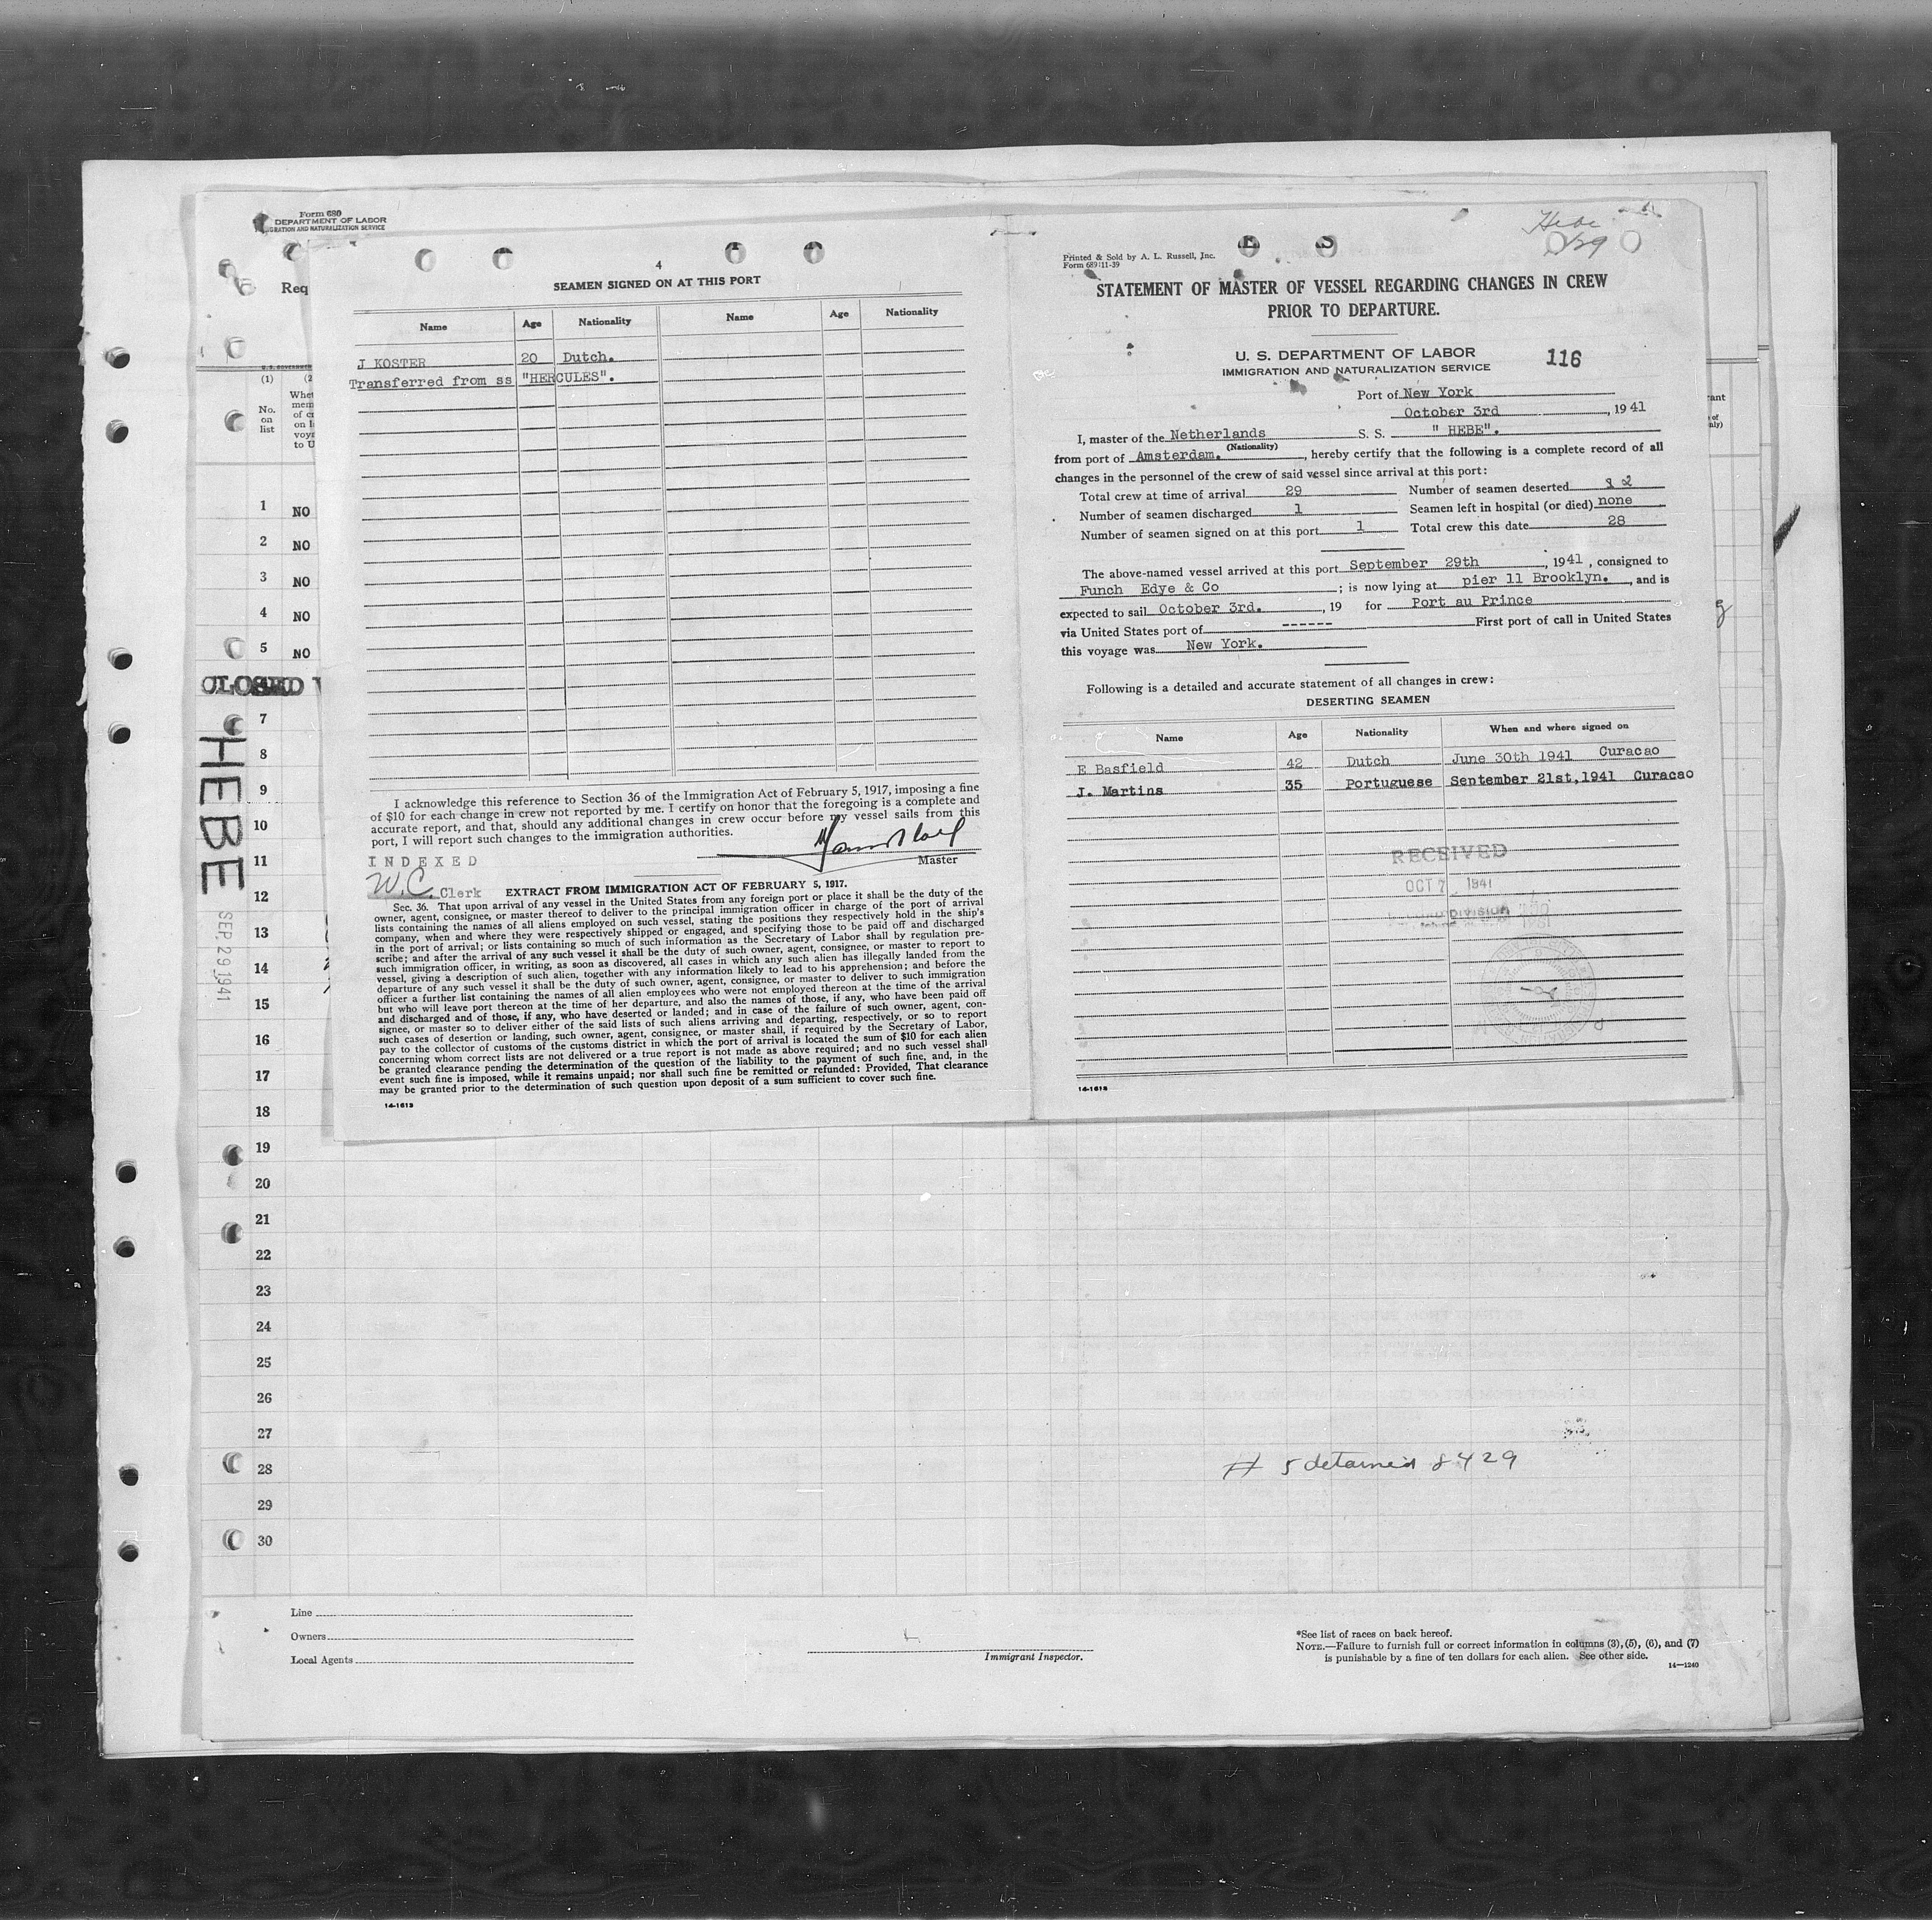 Form 680
DEPARTMENT OF LABOR
GRATION AND NATURALIZATION SERVICE
Req
(1)
No.
on
list
1 NO
2 NO
3 NO
4 NO
5 NO
CLOSED
7
8
9
10
11
12
13
14
15
16
17
18
19
20
21
22
23
24
25
26
27
28
29
30
HEBE
SEP 29 1941
4
SEAMEN SIGNED ON AT THIS PORT
Name Age Nationality Name Age Nationality
J KOSTER 20 Dutch.
Transferred from ss "HERCULES".
I acknowledge this reference to Section 36 of the Immigration Act of February 5, 1917, imposing a fine
of $10 for each change in crew not reported by me. I certify on honor that the foregoing is a complete and
accurate report, and that, should any additional changes in crew occur before my vessel sails from this
port, I will report such changes to the immigration authorities.
Master
INDEXED
W.C. Clerk
EXTRACT FROM IMMIGRATION ACT OF FEBRUARY 5, 1917.
Sec. 36. That upon arrival of any vessel in the United States from any foreign port or place it shall be the duty of the
owner, agent, consignee, or master thereof to deliver to the principal immigration officer in charge of the port of arrival
lists containing the names of all aliens employed on such vessel, stating the positions they respectively hold in the ship's
company, when and where they were respectively shipped or engaged, and specifying those to be paid off and discharged
in the port of arrival; or lists containing so much of such information as the Secretary of Labor shall by regulation pre-
scribe; and after the arrival of any such vessel it shall be the duty of such owner, agent, consignee, or master to report to
such immigration officer, in writing, as soon as discovered, all cases in which any such alien has illegally landed from the
vessel, giving a description of such alien, together with any information likely to lead to his apprehension; and before the
departure of any such vessel it shall be the duty of such owner, agent, consignee, or master to deliver to such immigration
officer a further list containing the names of all alien employees who were not employed thereon at the time of the arrival
but who will leave port thereon at the time of her departure, and also the names of those, if any, who have been paid off
and discharged and of those, if any, who have deserted or landed; and in case of the failure of such owner, agent, con-
signee, or master so to deliver either of the said lists of such aliens arriving and departing, respectively, or so to report
such cases of desertion or landing, such owner, agent, consignee, or master shall, if required by the Secretary of Labor,
pay to the collector of customs of the customs district in which the port of arrival is located the sum of $10 for each alien
concerning whom correct lists are not delivered or a true report is not made as above required; and no such vessel shall
be granted clearance pending the determination of the question of the liability to the payment of such fine, and, in the
event such fine is imposed, while it remains unpaid; nor shall such fine be remitted or refunded: Provided, That clearance
may be granted prior to the determination of such question upon deposit of a sum sufficient to cover such fine.
14-1613
Hebe
9/29
Printed & Sold by A. L. Russell, Inc.
Form 689:11-39
STATEMENT OF MASTER OF VESSEL REGARDING CHANGES IN CREW
PRIOR TO DEPARTURE.
U. S. DEPARTMENT OF LABOR
IMMIGRATION AND NATURALIZATION SERVICE
116
Port of New York
October 3rd, 1941
I, master of the Netherlands S. S. " HEBE".
(Nationality)
from port of Amsterdam., hereby certify that the following is a complete record of all
changes in the personnel of the crew of said vessel since arrival at this port:
Total crew at time of arrival 29 Number of seamen deserted 2
Number of seamen discharged 1 Seamen left in hospital (or died) none
Number of seamen signed on at this port 1 Total crew this date 28
The above-named vessel arrived at this port September 29th, 1941, consigned to
Funch Edye & Co; is now lying at pier 11 Brooklyn., and is
expected to sail October 3rd., 19 for Port au Prince
via United States port of ------ First port of call in United States
this voyage was New York.
Following is a detailed and accurate statement of all changes in crew:
DESERTING SEAMEN
Name Age Nationality When and where signed on
E Basfield 42 Dutch June 30th 1941 Curacao
J. Martins 35 Portuguese September 21st,1941 Curacao
RECEIVED
OCT 7 1941
Division
14-1613
# 5 detained 8429
Line
Owners
Local Agents
Immigrant Inspector.
*See list of races on back hereof.
NOTE.—Failure to furnish full or correct information in columns (3), (5), (6), and (7)
is punishable by a fine of ten dollars for each alien. See other side.
14—1240